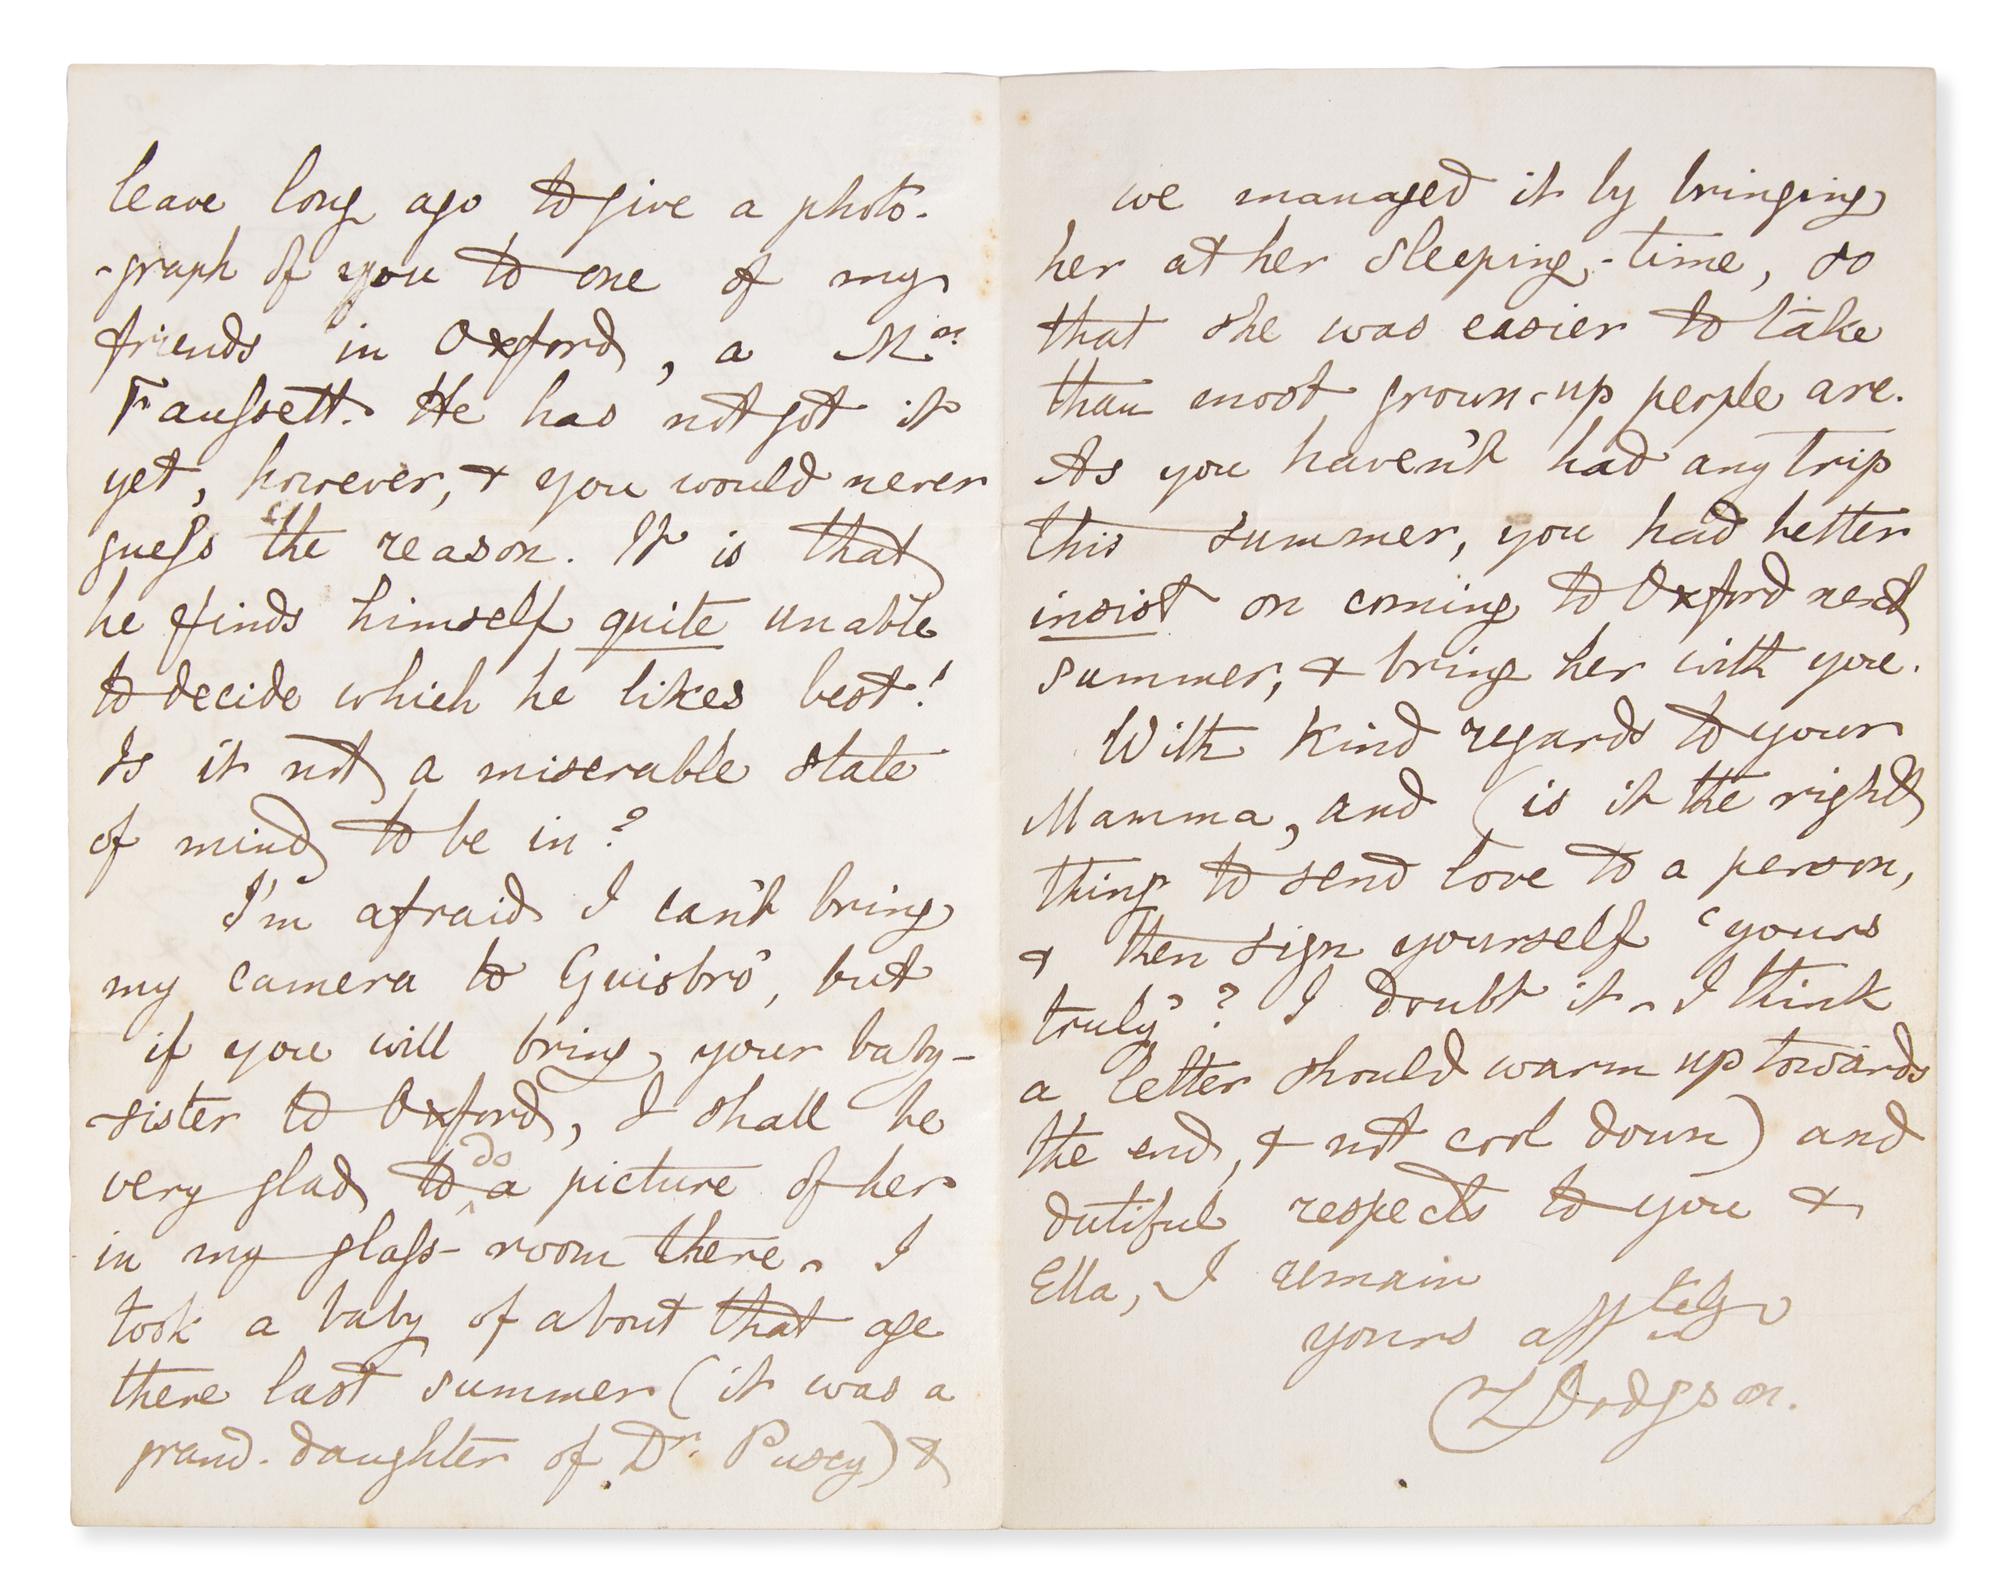 leave long ago to give a photo-
-graph of you to one of my
friends in Oxford, a Mr.
Faussett. He has not got it
yet, however, & you would never
guess the reason. It is that
he finds himself quite unable
to decide which he likes best!
Is it not a miserable state
of mind to be in?
I'm afraid I can't bring
my camera to Guisbro', but
if you will bring your baby-
sister to Oxford, I shall be
very glad to do a picture of her
in my glass-room there. I
took a baby of about that age
there last summer (it was a
grand-daughter of Dr. Pusey) &
we managed it by bringing
her at her sleeping-time, so
that she was easier to take
than most grown-up people are.
As you haven't had any trip
this summer, you had better
insist on coming to Oxford next
summer, & bring her with you.
With kind regards to your
Mamma, and (is it the right
thing to send love to a person,
& then sign yourself 'yours
truly'? I doubt it. I think
a letter should warm up towards
the end, & not cool down) and
dutiful respects to you &
Ella, I remain
yours afftely
CLDodgson.